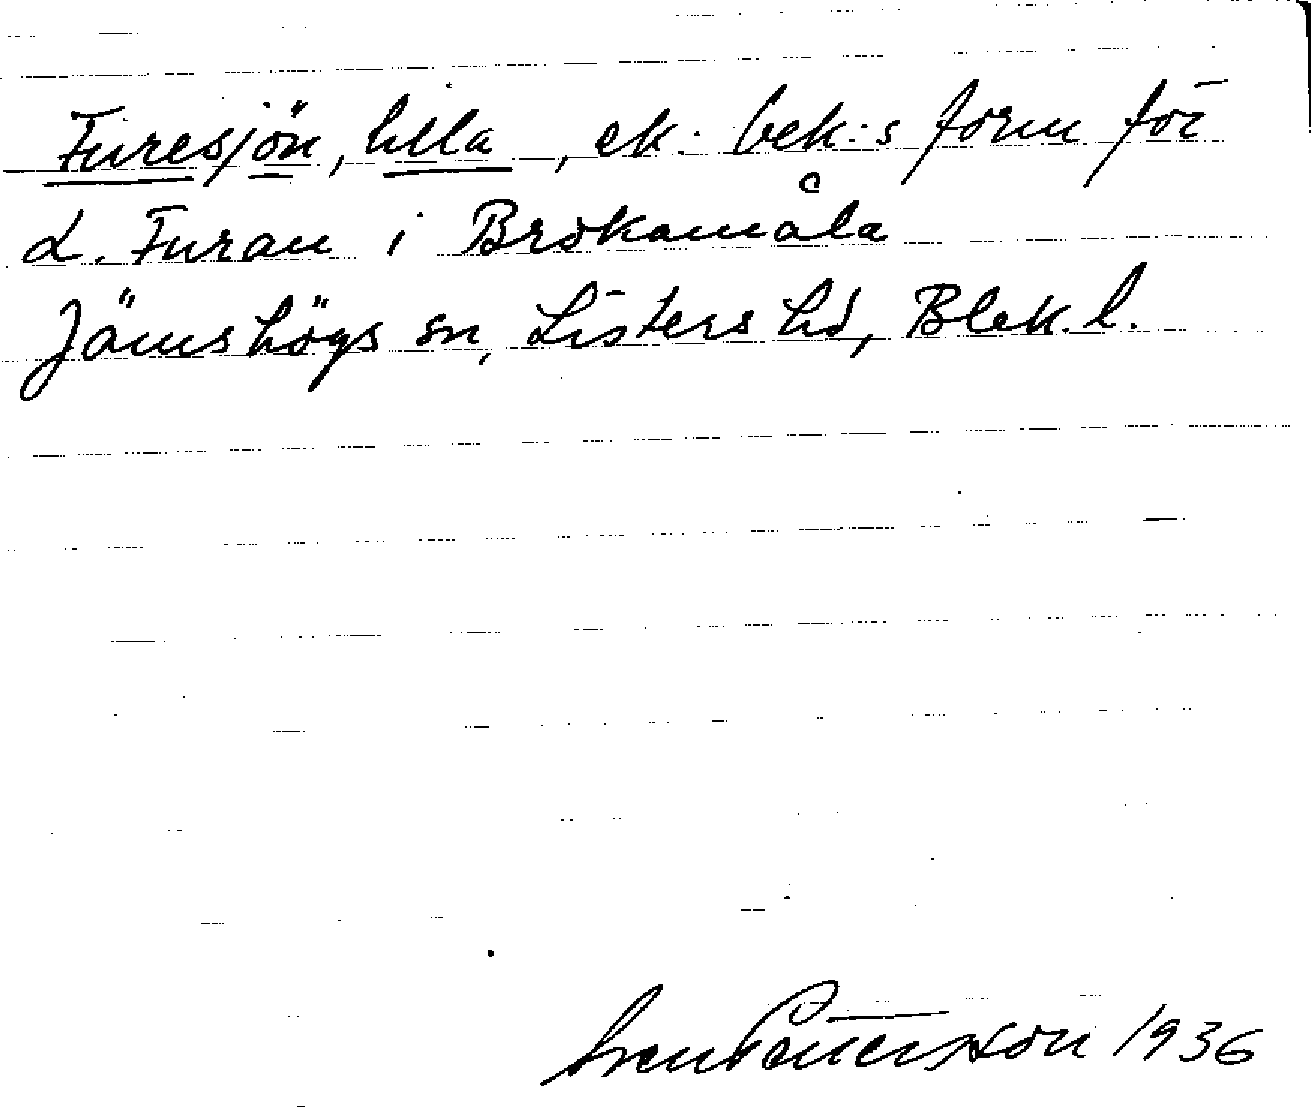 Furesjön, lilla, ek. bek:s form för
L. Furan i Brokamåla
Jämshögs sn, Listers hd, Blek. l.
Sven Pettersson 1936